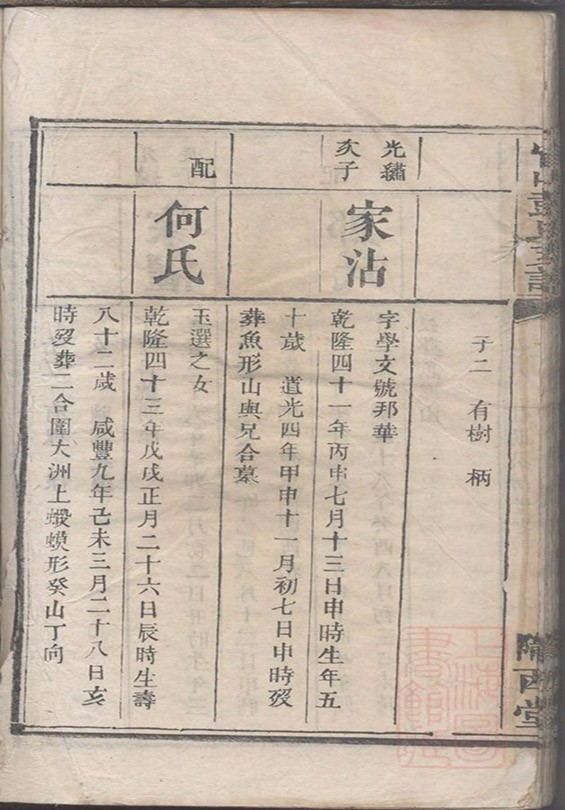 子二 有樹 柄
光繡
次子
家沾
字學文號邦華
乾隆四十一年丙申七月十三日申時生年五
十歲 道光四年甲申十一月初七日申時歿
葬魚形山與兄合墓
配
何氏
玉選之女
乾隆四十三年戊戌正月二十六日辰時生壽
八十二歲 咸豐九年己未三月二十八日亥
時歿葬二合圍大洲上蝦蟆形癸山丁向
隴西堂
上海圖
書館藏